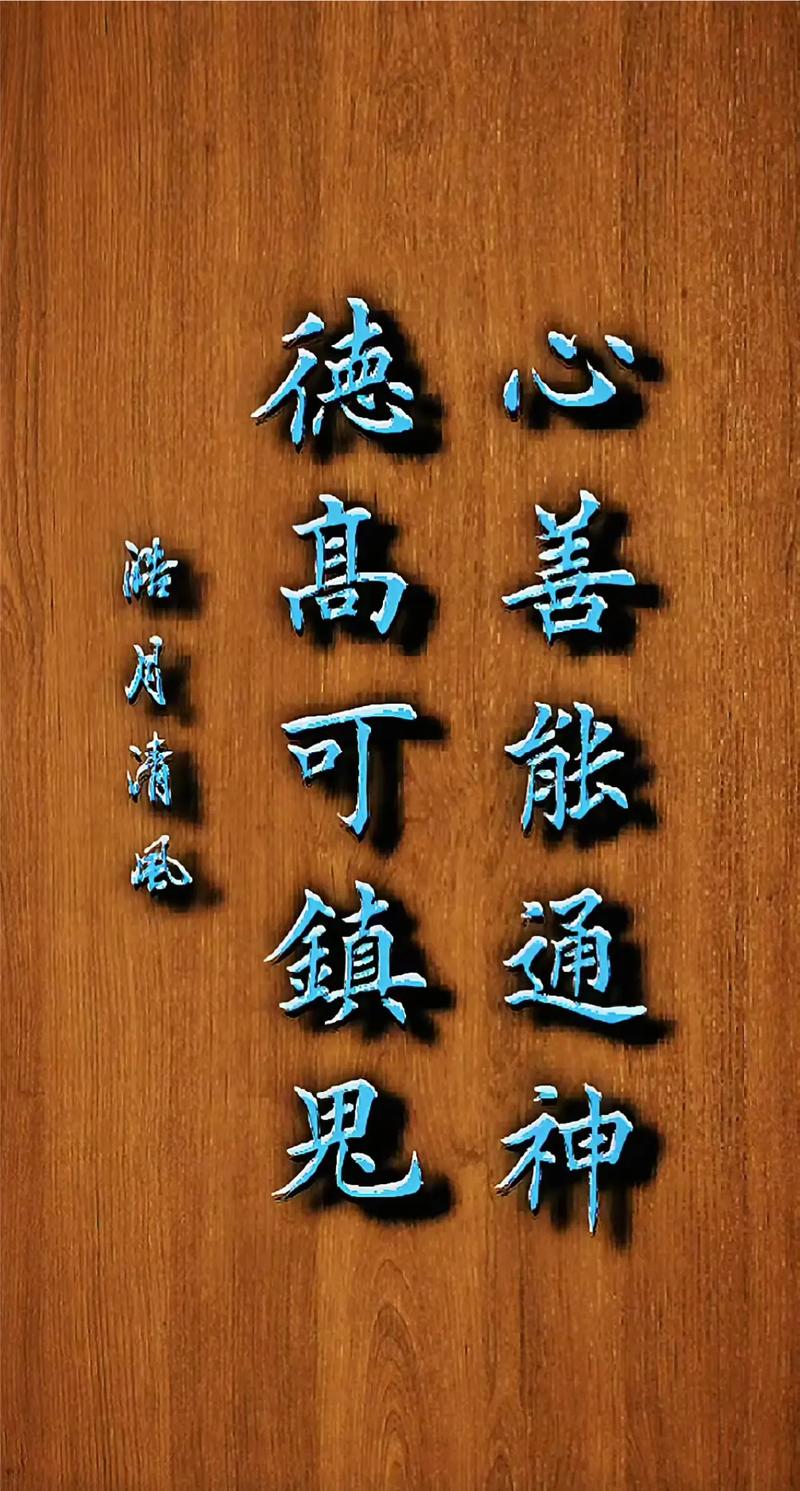 心善能通神
德高可鎮鬼
皓月清風